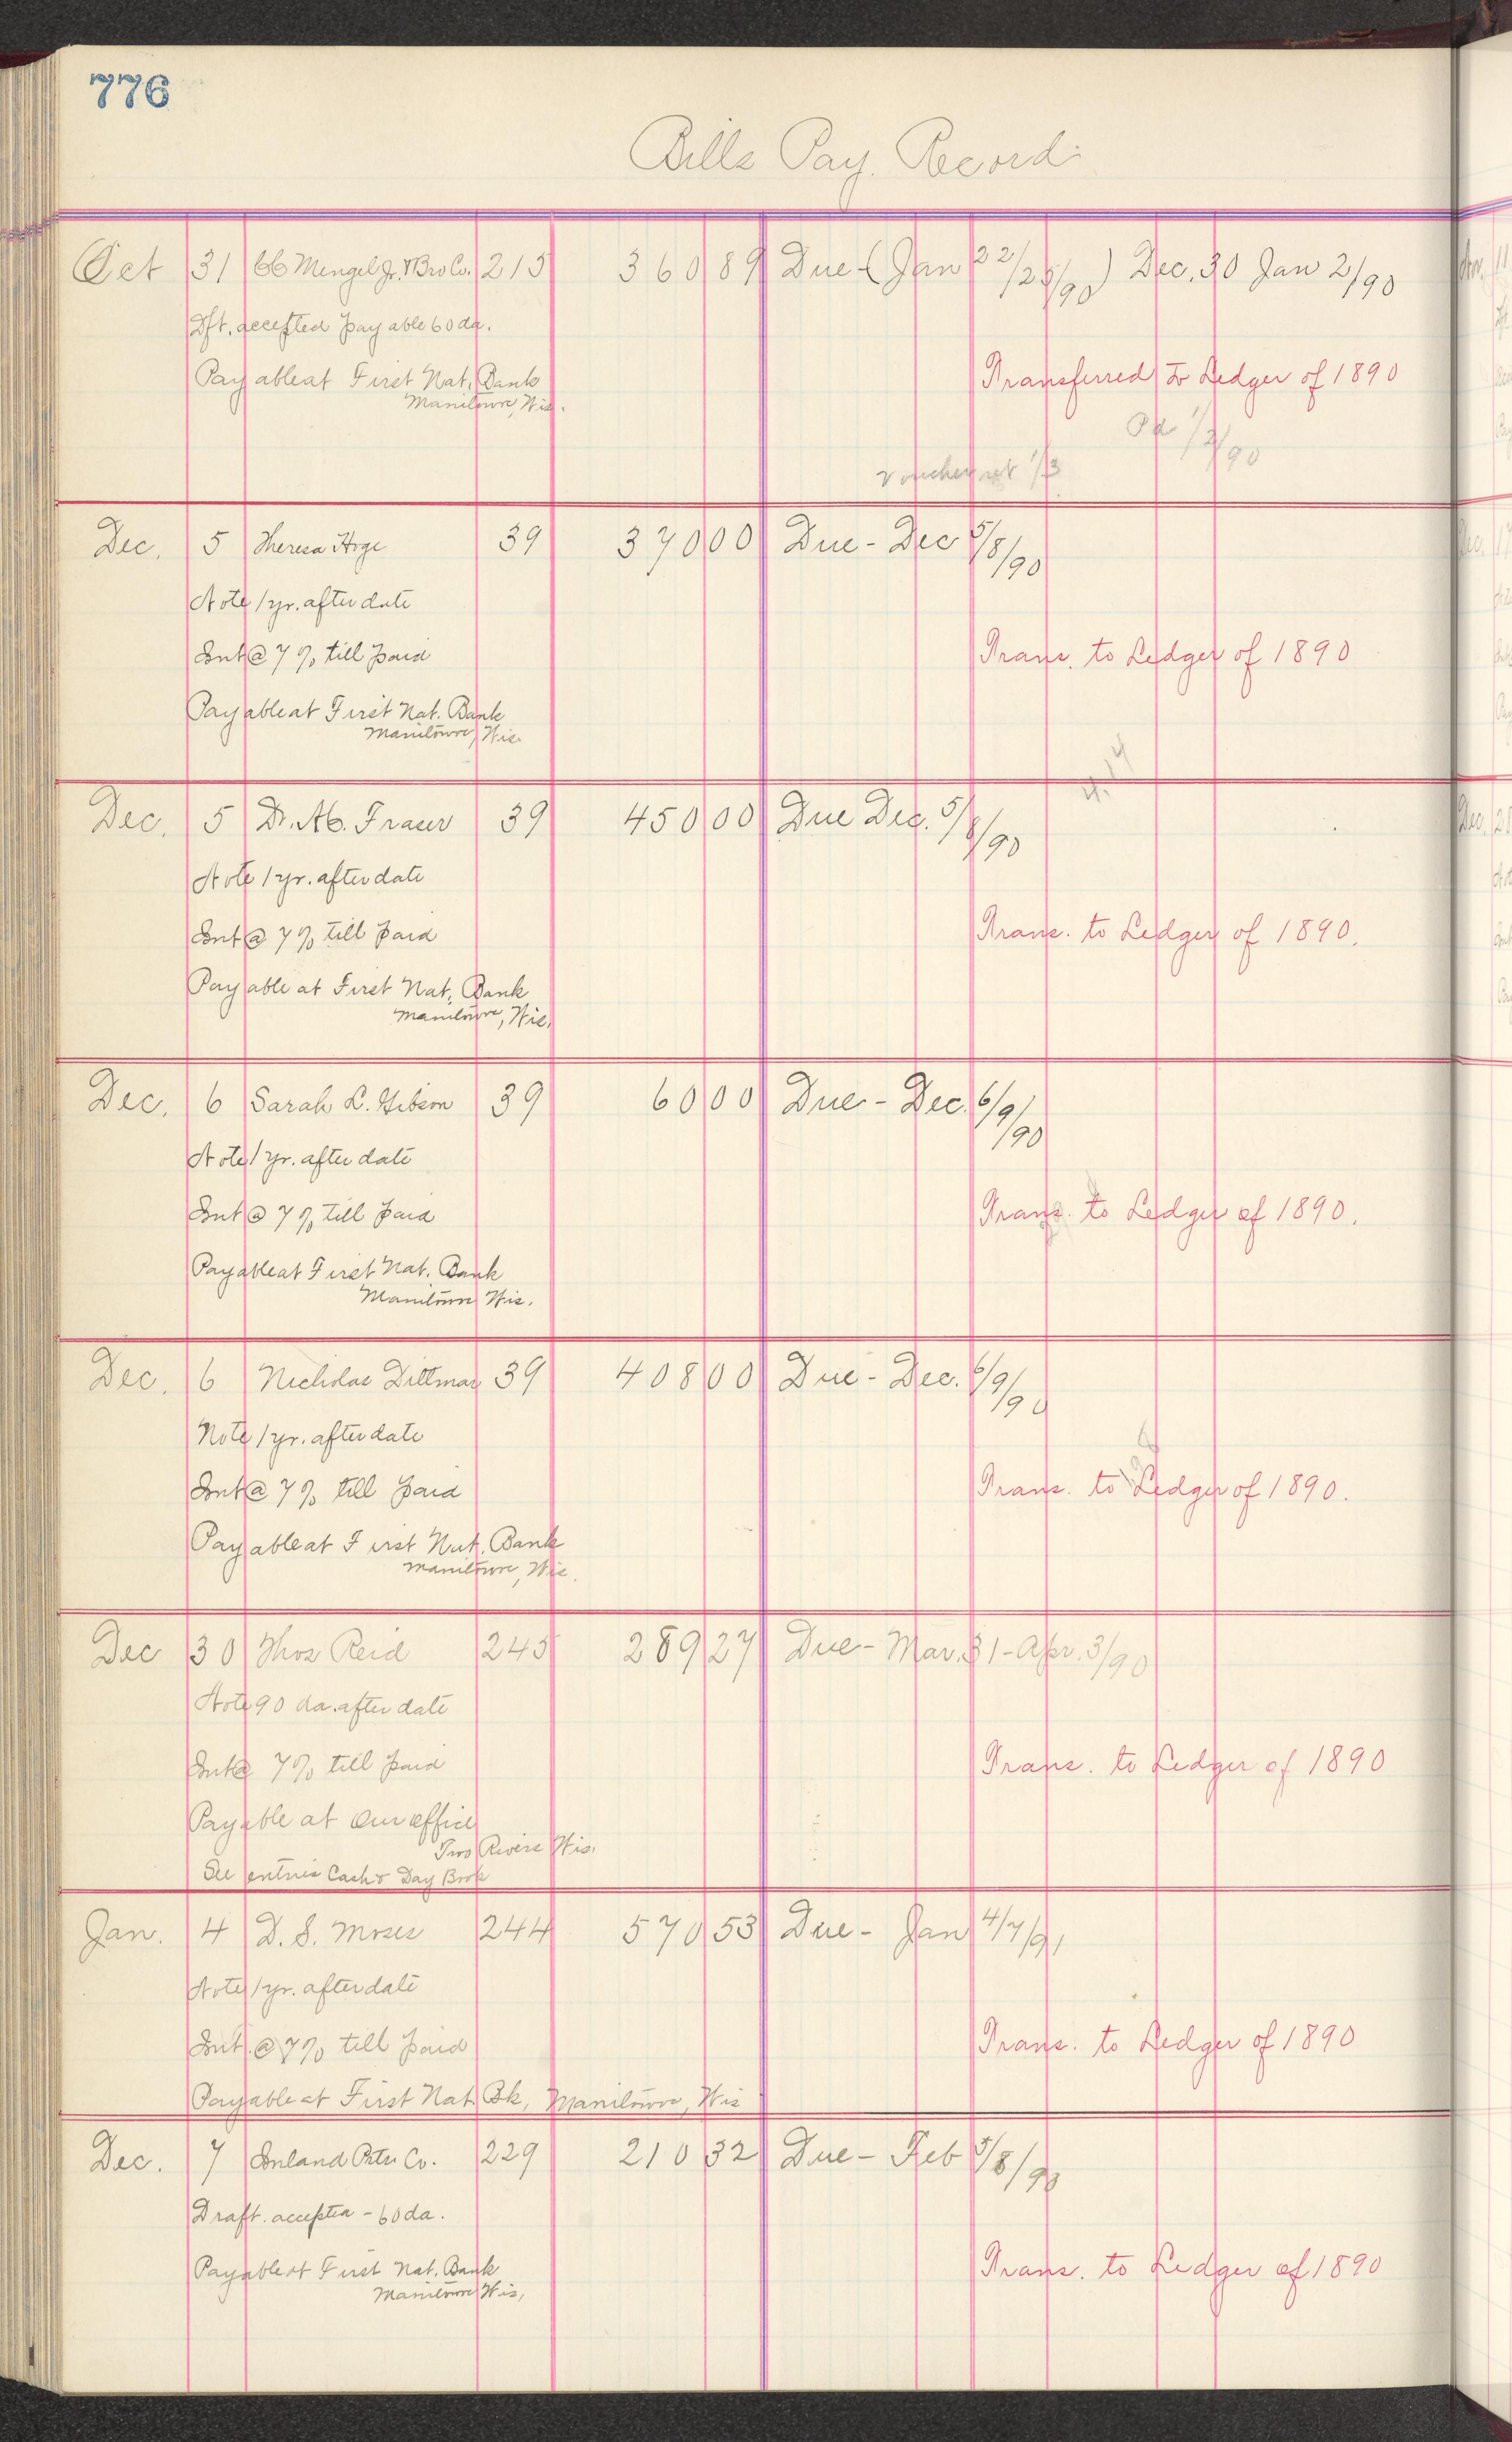 776
Bills Pay. Record
Oct 31 CC Mengel Jr. & Bro Co. 215 360 89 Due (Jan 22/25/90) Dec. 30 Jan 2/90
Dft. accepted payable 60 da.
Payable at First Nat. Bank
Manitowoc, Wis.
Transferred to Ledger of 1890
Pd 1/2/90
Voucher ret 1/3
Dec. 5 Theresa 39 370 00 Due - Dec 5/8/90
Note 1 yr. after date
Int @ 7% till paid
Trans. to Ledger of 1890
Payable at First Nat. Bank
Manitowoc, Wis.
Dec. 5 Dr. Fraser 39 450 00 Due Dec. 5/8/90
Note 1 yr. after date
Int @ 7% till paid
Trans. to Ledger of 1890.
Payable at First Nat. Bank
Manitowoc, Wis.
Dec. 6 Sarah L. Gibson 39 60 00 Due - Dec. 6/9/90
Note 1 yr. after date
Int @ 7% till paid
Trans. to Ledger of 1890.
Payable at First Nat. Bank
Manitowoc Wis.
Dec. 6 Nicholas Dittmar 39 408 00 Due - Dec. 6/9/90
Note 1 yr. after date
Int @ 7% till paid
Trans. to Ledger of 1890.
Payable at First Nat. Bank
Manitowoc, Wis.
Dec 30 Thos Reid 245 289 27 Due - Mar. 31 - Apr. 3/90
Note 90 da. after date
Int @ 7% till paid
Trans. to Ledger of 1890
Payable at Our office
Two Rivers Wis.
See entries Cash & Day Book
Jan. 4 D. S. Moses 244 570 53 Due - Jan 4/7/91
Note 1 yr. after date
Int. @ 7% till paid
Trans. to Ledger of 1890
Payable at First Nat. Bk, Manitowoc, Wis
Dec. 7 Inland Ptr Co. 229 210 32 Due - Feb 5/8/90
Draft. accepted - 60 da.
Payable at First Nat. Bank
Manitowoc Wis,
Trans. to Ledger of 1890